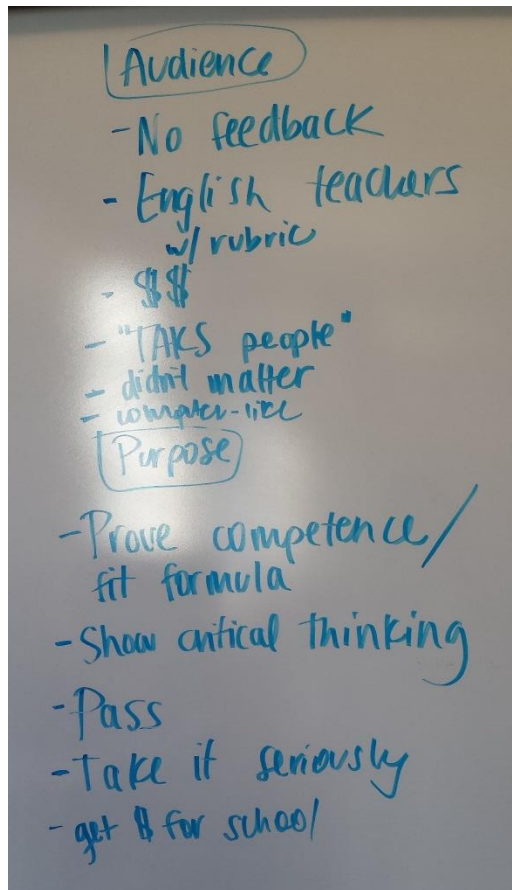 Audience
- No feedback
- English teachers
w/ rubric
- $$
- "TAKS people"
- didn't matter
- computer-like
Purpose
- Prove competence/
fit formula
- Show critical thinking
- Pass
- Take it seriously
- get $ for school